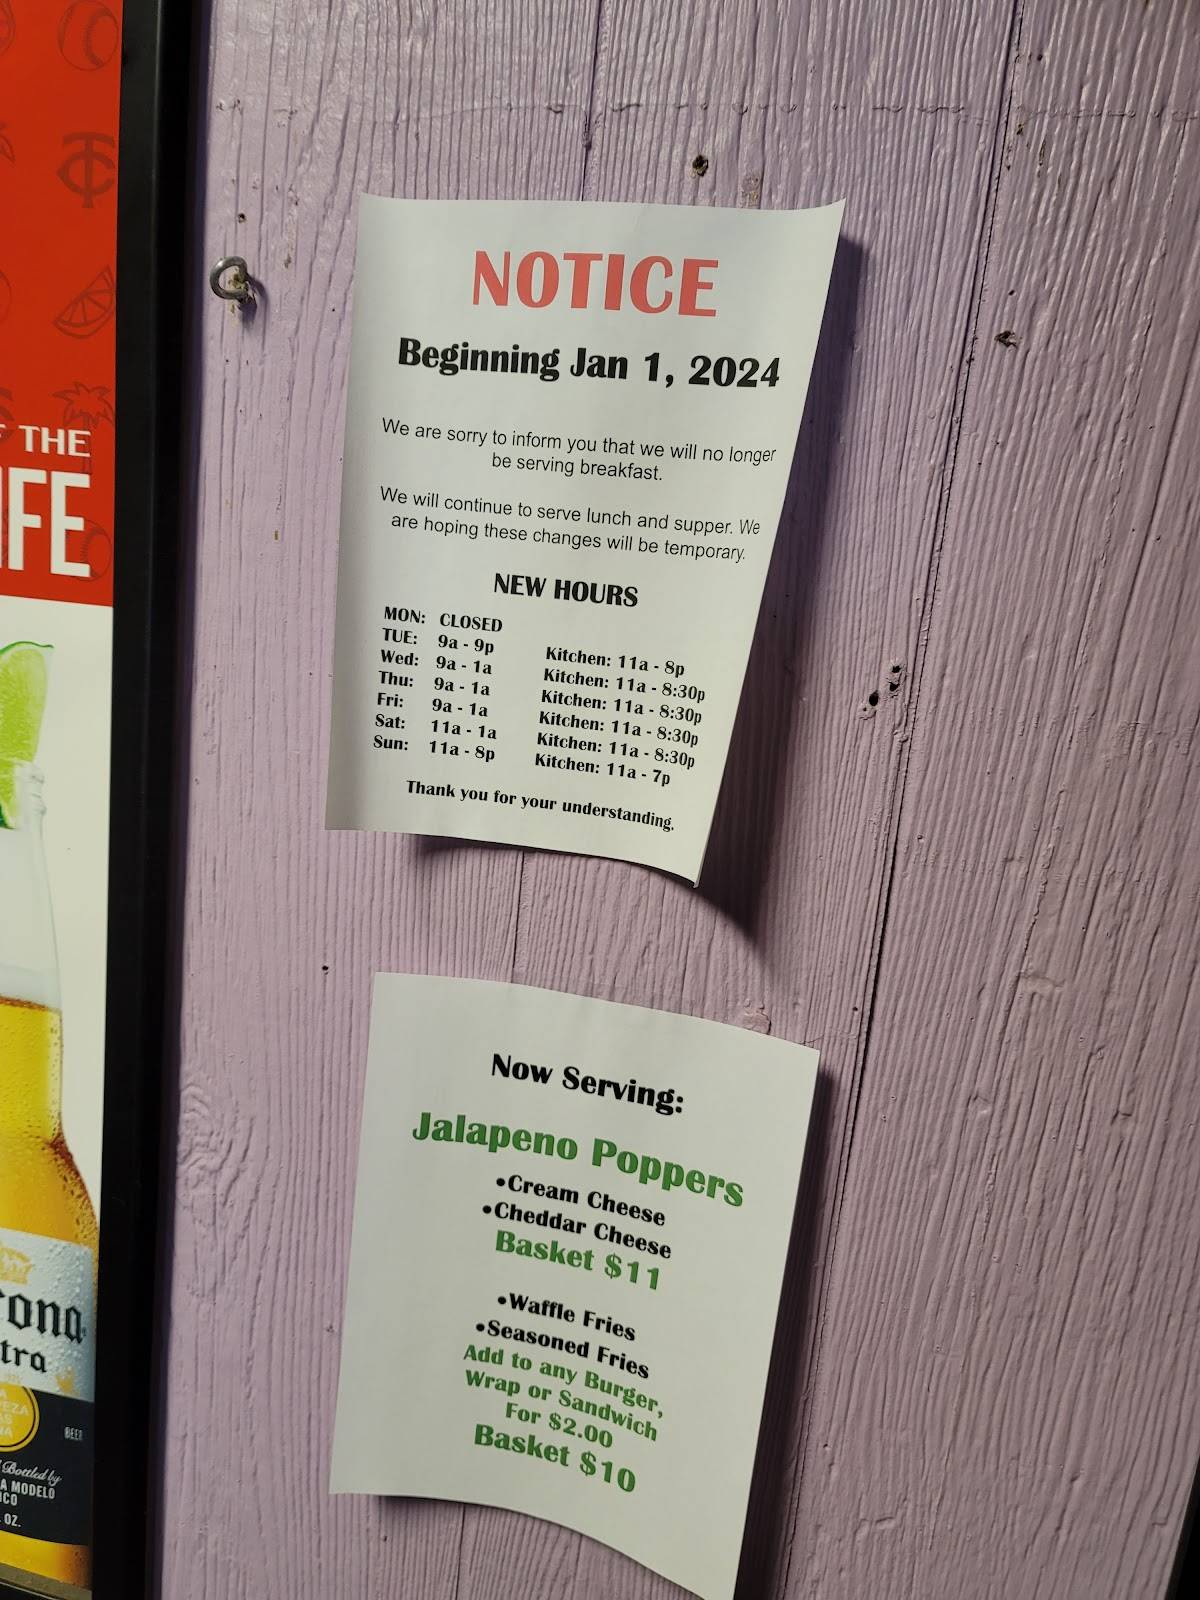 THE
IFE
NOTICE
Beginning Jan 1, 2024
We are sorry to inform you that we will no longer
be serving breakfast.
We will continue to serve lunch and supper. We
are hoping these changes will be temporary.
NEW HOURS
MON: CLOSED
TUE: 9a - 9p Kitchen: 11a - 8p
Wed: 9a - 1a Kitchen: 11a - 8:30p
Thu: 9a - 1a Kitchen: 11a - 8:30p
Fri: 9a - 1a Kitchen: 11a - 8:30p
Sat: 11a - 1a Kitchen: 11a - 8:30p
Sun: 11a - 8p Kitchen: 11a - 7p
Thank you for your understanding.
Now Serving:
Jalapeno Poppers
•Cream Cheese
•Cheddar Cheese
Basket $11
•Waffle Fries
•Seasoned Fries
Add to any Burger,
Wrap or Sandwich
For $2.00
Basket $10
rona
tra
BEER
Bottled by
A MODELO
ICO
OZ.